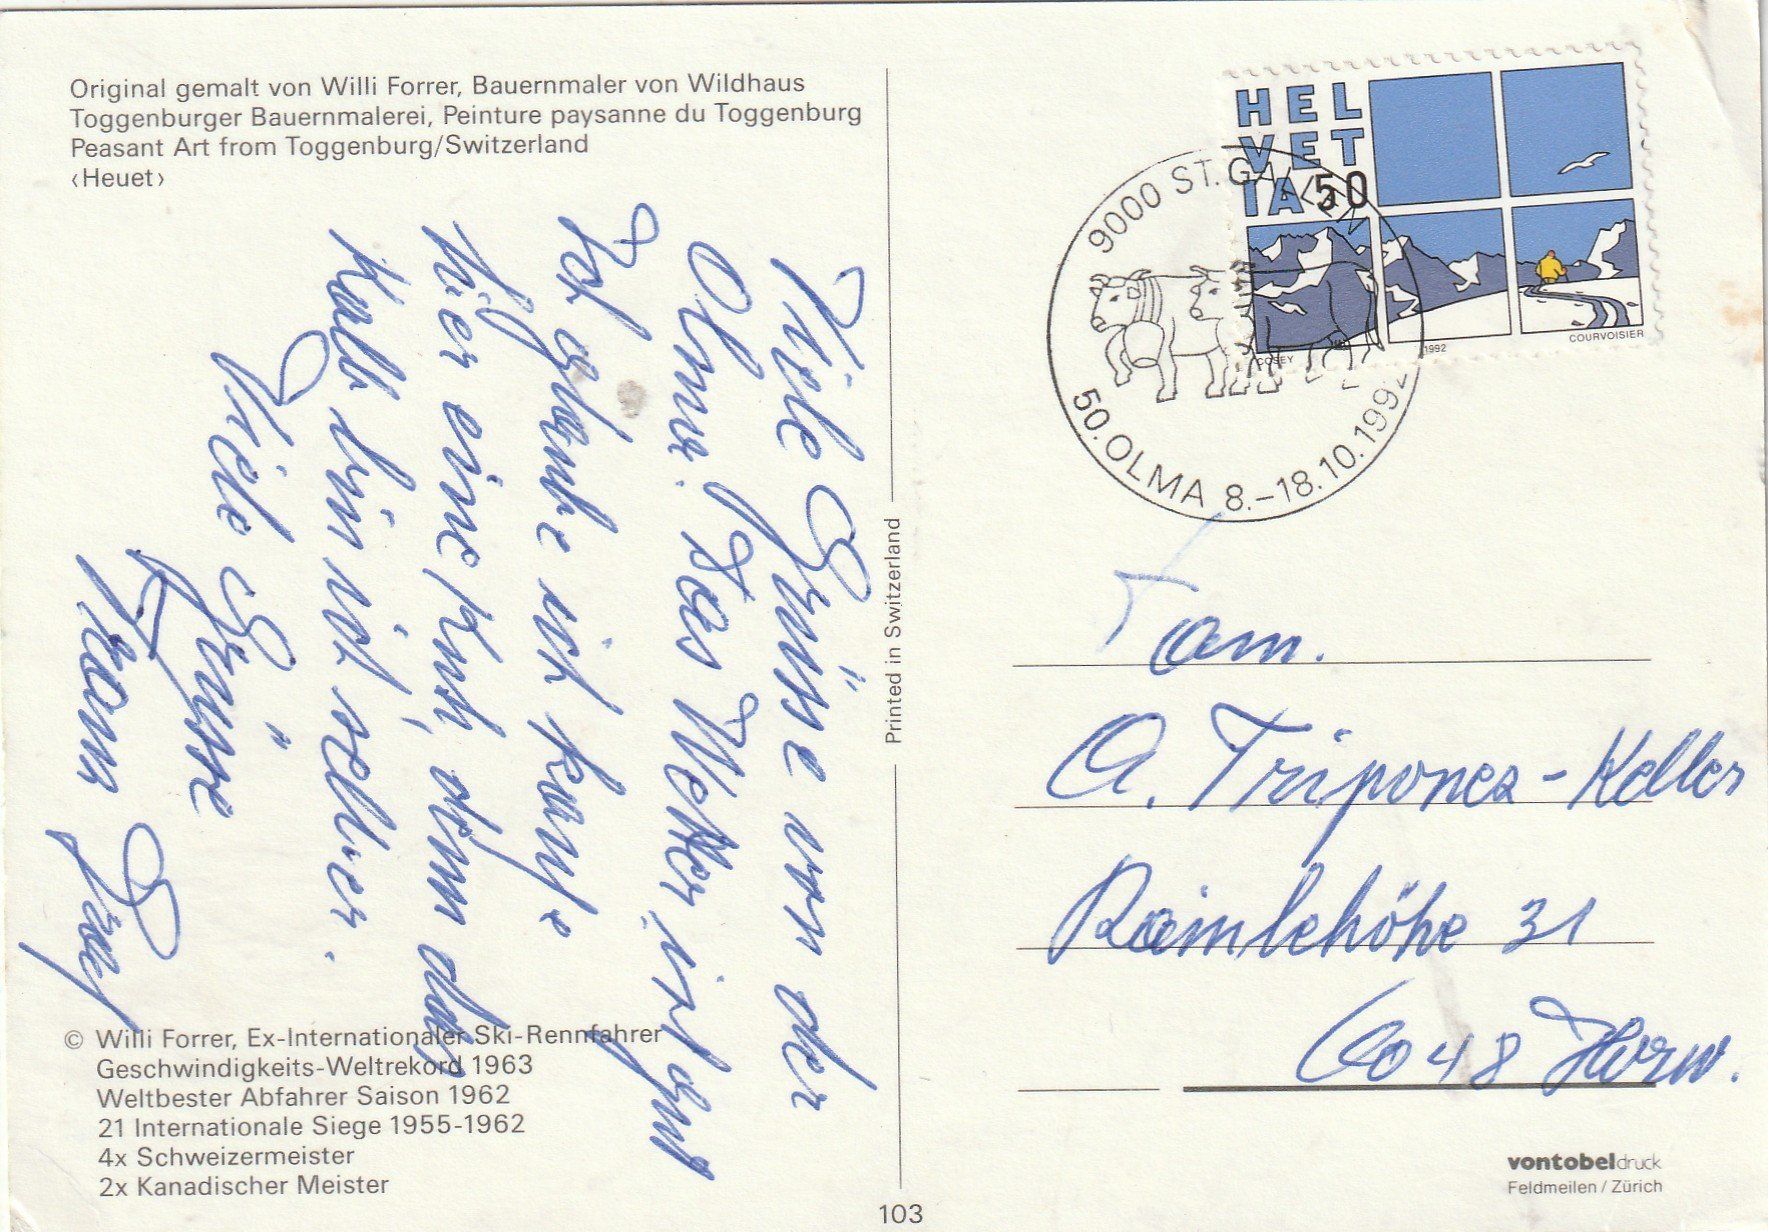 Original gemalt von Willi Forrer, Bauernmaler von Wildhaus
Toggenburger Bauernmalerei, Peinture paysanne du Toggenburg
Peasant Art from Toggenburg/Switzerland
‹Heuet›
Viele Grüsse von der
Olma. Das Wetter ist gut
Ich glaube ich kaufe
hier eine Kuh, denn das
Kalb bin ich selber.
Viele Grüsse
© Willi Forrer, Ex-Internationaler Ski-Rennfahrer
Geschwindigkeits-Weltrekord 1963
Weltbester Abfahrer Saison 1962
21 Internationale Siege 1955-1962
4x Schweizermeister
2x Kanadischer Meister
Printed in Switzerland
103
HEL
VET
IA 50
COSEY
1992
COURVOISIER
9000 ST. GALLEN
50. OLMA 8.-18.10.1992
Fam.
A. Triponez-Keller
6048 Horw.
vontobeldruck
Feldmeilen / Zürich